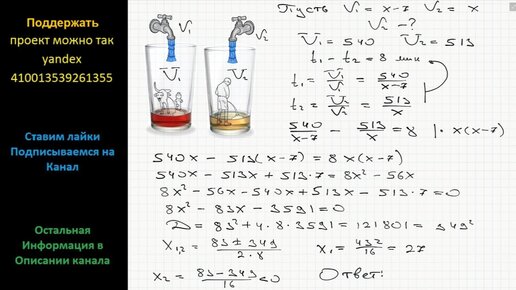 Поддержать
проект можно так
yandex
410013539261355
Ставим лайки
Подписываемся на
Канал
Остальная
Информация в
Описании канала
V₁
V₂
V̅₁
V̅₂
Пусть V₁ = x-7 V₂ = x
V₂ - ?
V̅₁ = 540 V̅₂ = 513
t₁ - t₂ = 8 мин
t₁ = V̅₁/V₁ = 540/(x-7)
t₂ = V̅₂/V₂ = 513/x
540/(x-7) - 513/x = 8 | · x(x-7)
540x - 513(x-7) = 8x(x-7)
540x - 513x + 513·7 = 8x² - 56x
8x² - 56x - 540x + 513x - 513·7 = 0
8x² - 83x - 3591 = 0
D = 83² + 4·8·3591 = 121801 = 349²
x₁,₂ = (83 ± 349)/(2·8) x₁ = 432/16 = 27
x₂ = (83-349)/16 < 0 Ответ: